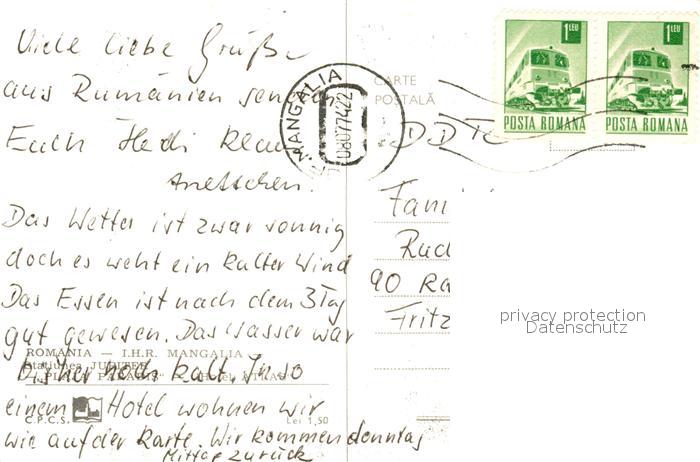 Viele liebe Grüße
aus Rumänien senden
Euch Hedi Klaus
Annettchen.
Das Wetter ist zwar sonnig
doch es weht ein kalter Wind
Das Essen ist nach dem 3 Tag
gut gewesen. Das Wasser war
bisher noch kalt. In so
einem Hotel wohnen wir
wie auf der Karte. Wir kommen donntag
Mittag zurück
ROMÂNIA — I.H.R. MANGALIA
Staţiunea JUPITER
C.P.C.S.
Lei 1,50
MANGALIA
080774.22
CARTE
POSTALĂ
1 LEU
POSTA ROMANA
1 LEU
POSTA ROMANA
DDR
Fami
Rud
90 Ka
Fritz
privacy protection
Datenschutz